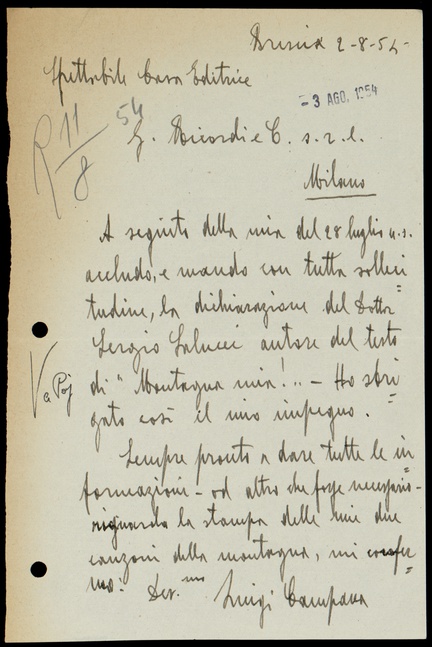 Brescia 2-8-54-
Spettabile Casa Editrice
- 3 AGO. 1954
R 11/8 54
G. Ricordi e C. s.r.l.
Milano
A seguito della mia del 28 luglio u.s.
accludo, e mando con tutta solleci=
tudine, la dichiarazione del Dottor
Sergio Salucci autore del testo
di "Montagna mia!.. - Ho sbri=
gato così il mio impegno.
Va Poj
Sempre pronto a dare tutte le in=
formazioni - od altro che fosse necessario -
riguardo la stampa delle mie due
canzoni della montagna, mi confer=
mo: Dev.mo Luigi Campana